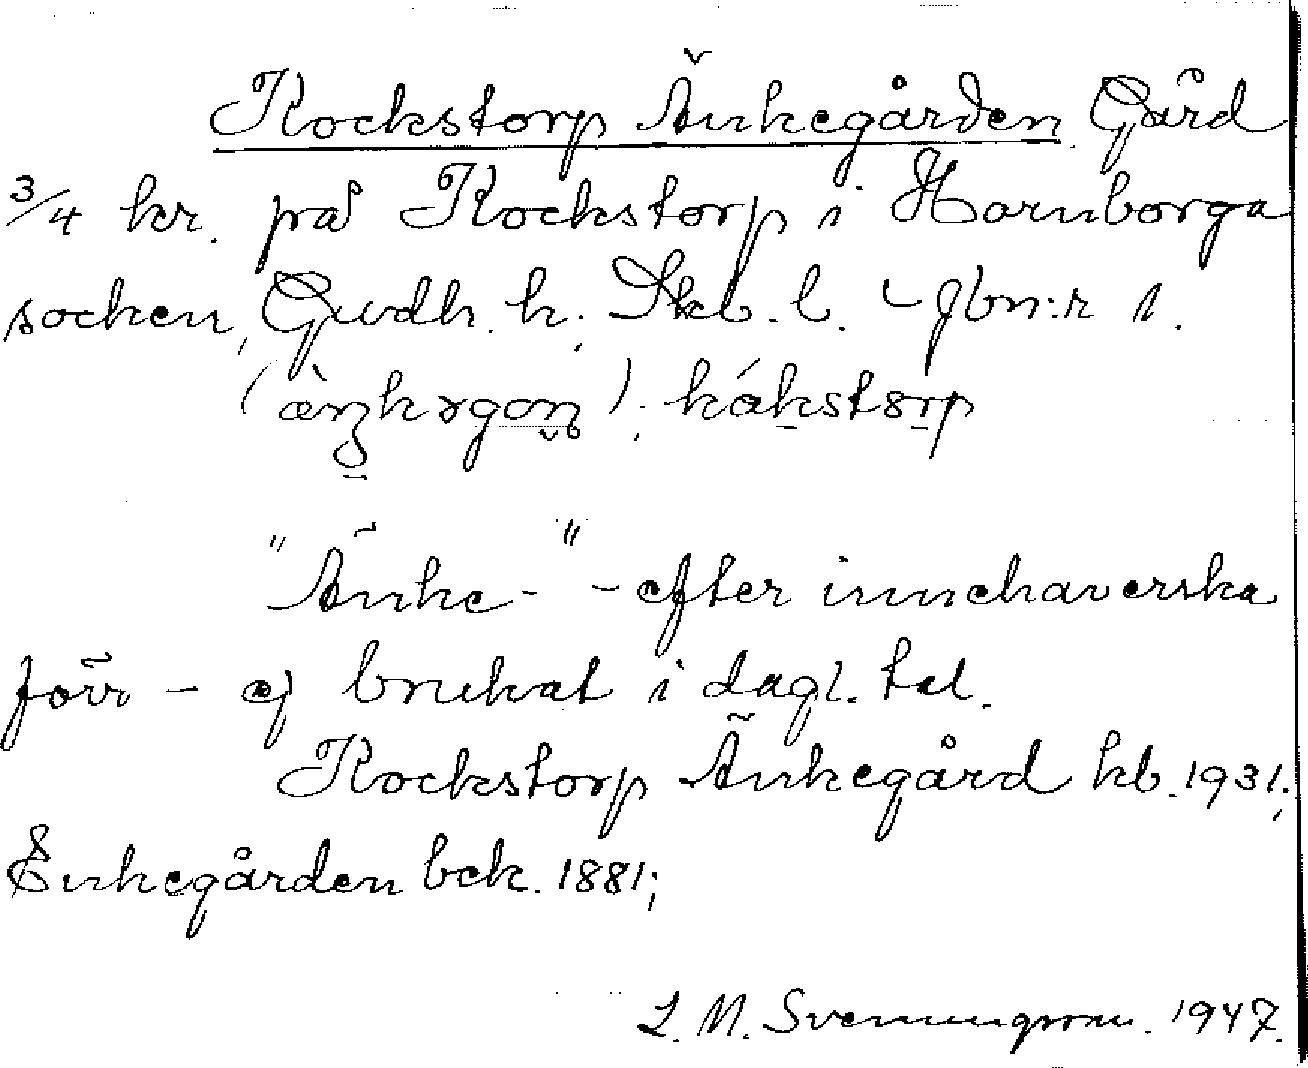 Kockstorp Änkegården Gård
3/4 kr. på Kockstorp i Hornborga
socken, Gudh. h; Skb. l. - Jbn:r 1.
kákstorp
"Änke-" - efter innehaverska
förr - ej brukat i dagl. tal.
Kockstorp Änkegård kb. 1931;
Enkegården bek. 1881;
L. M. Svenungsson. 1947.